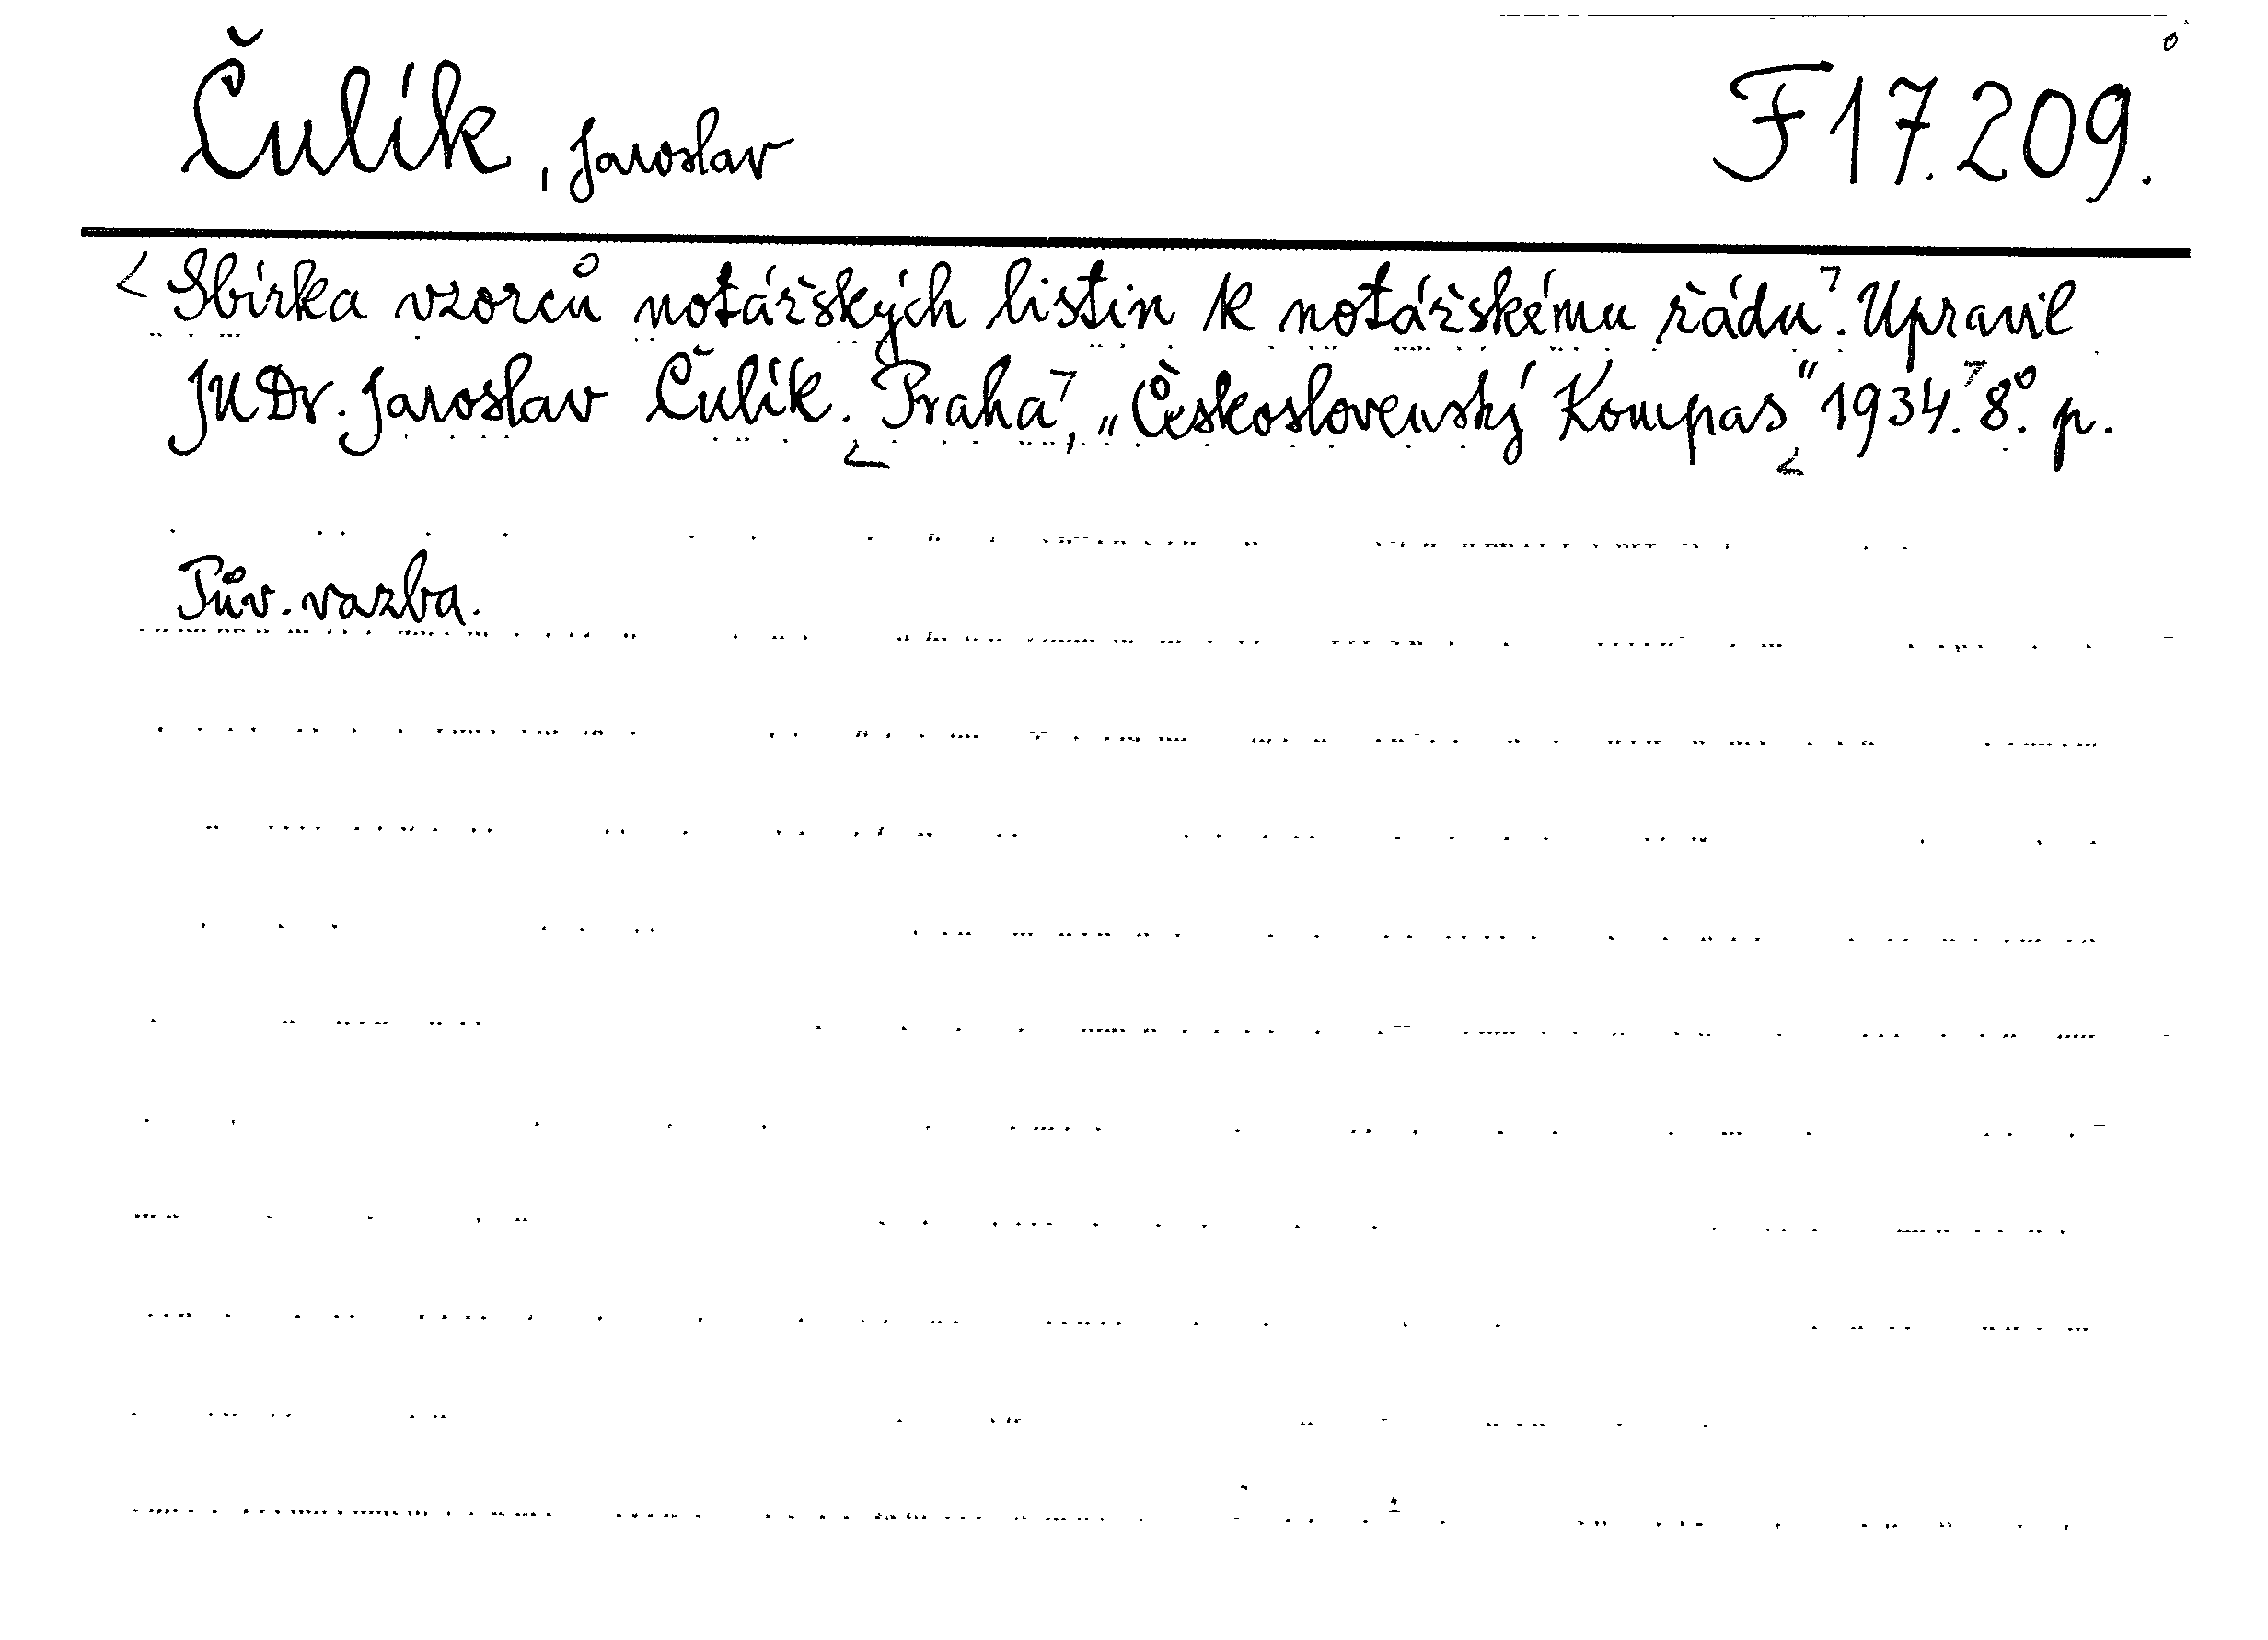 Čulík, Jaroslav F 17.209.
Sbírka vzorců notářských listin k notářskému řádu. Upravil
JUDr. Jaroslav Čulík. Praha, „Československý Kompas" 1934. 8°. p.
Pův. vazba.